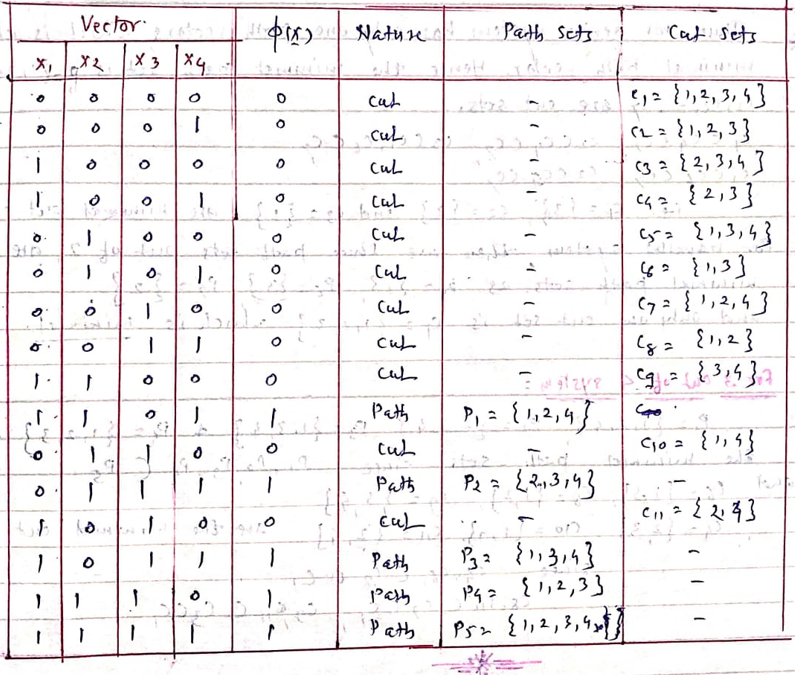 Vector φ(x) Nature Path sets Cut sets
x1 x2 x3 x4
0 0 0 0 0 Cut - C1 = {1,2,3,4}
0 0 0 1 0 Cut - C2 = {1,2,3}
1 0 0 0 0 Cut - C3 = {2,3,4}
1 0 0 1 0 Cut - C4 = {2,3}
0 1 0 0 0 Cut - C5 = {1,3,4}
0 1 0 1 0 Cut - C6 = {1,3}
0 0 1 0 0 Cut - C7 = {1,2,4}
0 0 1 1 0 Cut - C8 = {1,2}
1 1 0 0 0 Cut - C9 = {3,4}
1 1 0 1 1 Path P1 = {1,2,4}
0 1 1 0 0 Cut - C10 = {1,4}
0 1 1 1 1 Path P2 = {2,3,4} -
1 0 1 0 0 Cut - C11 = {2,4}
1 0 1 1 1 Path P3 = {1,3,4} -
1 1 1 0 1 Path P4 = {1,2,3} -
1 1 1 1 1 Path P5 = {1,2,3,4} -